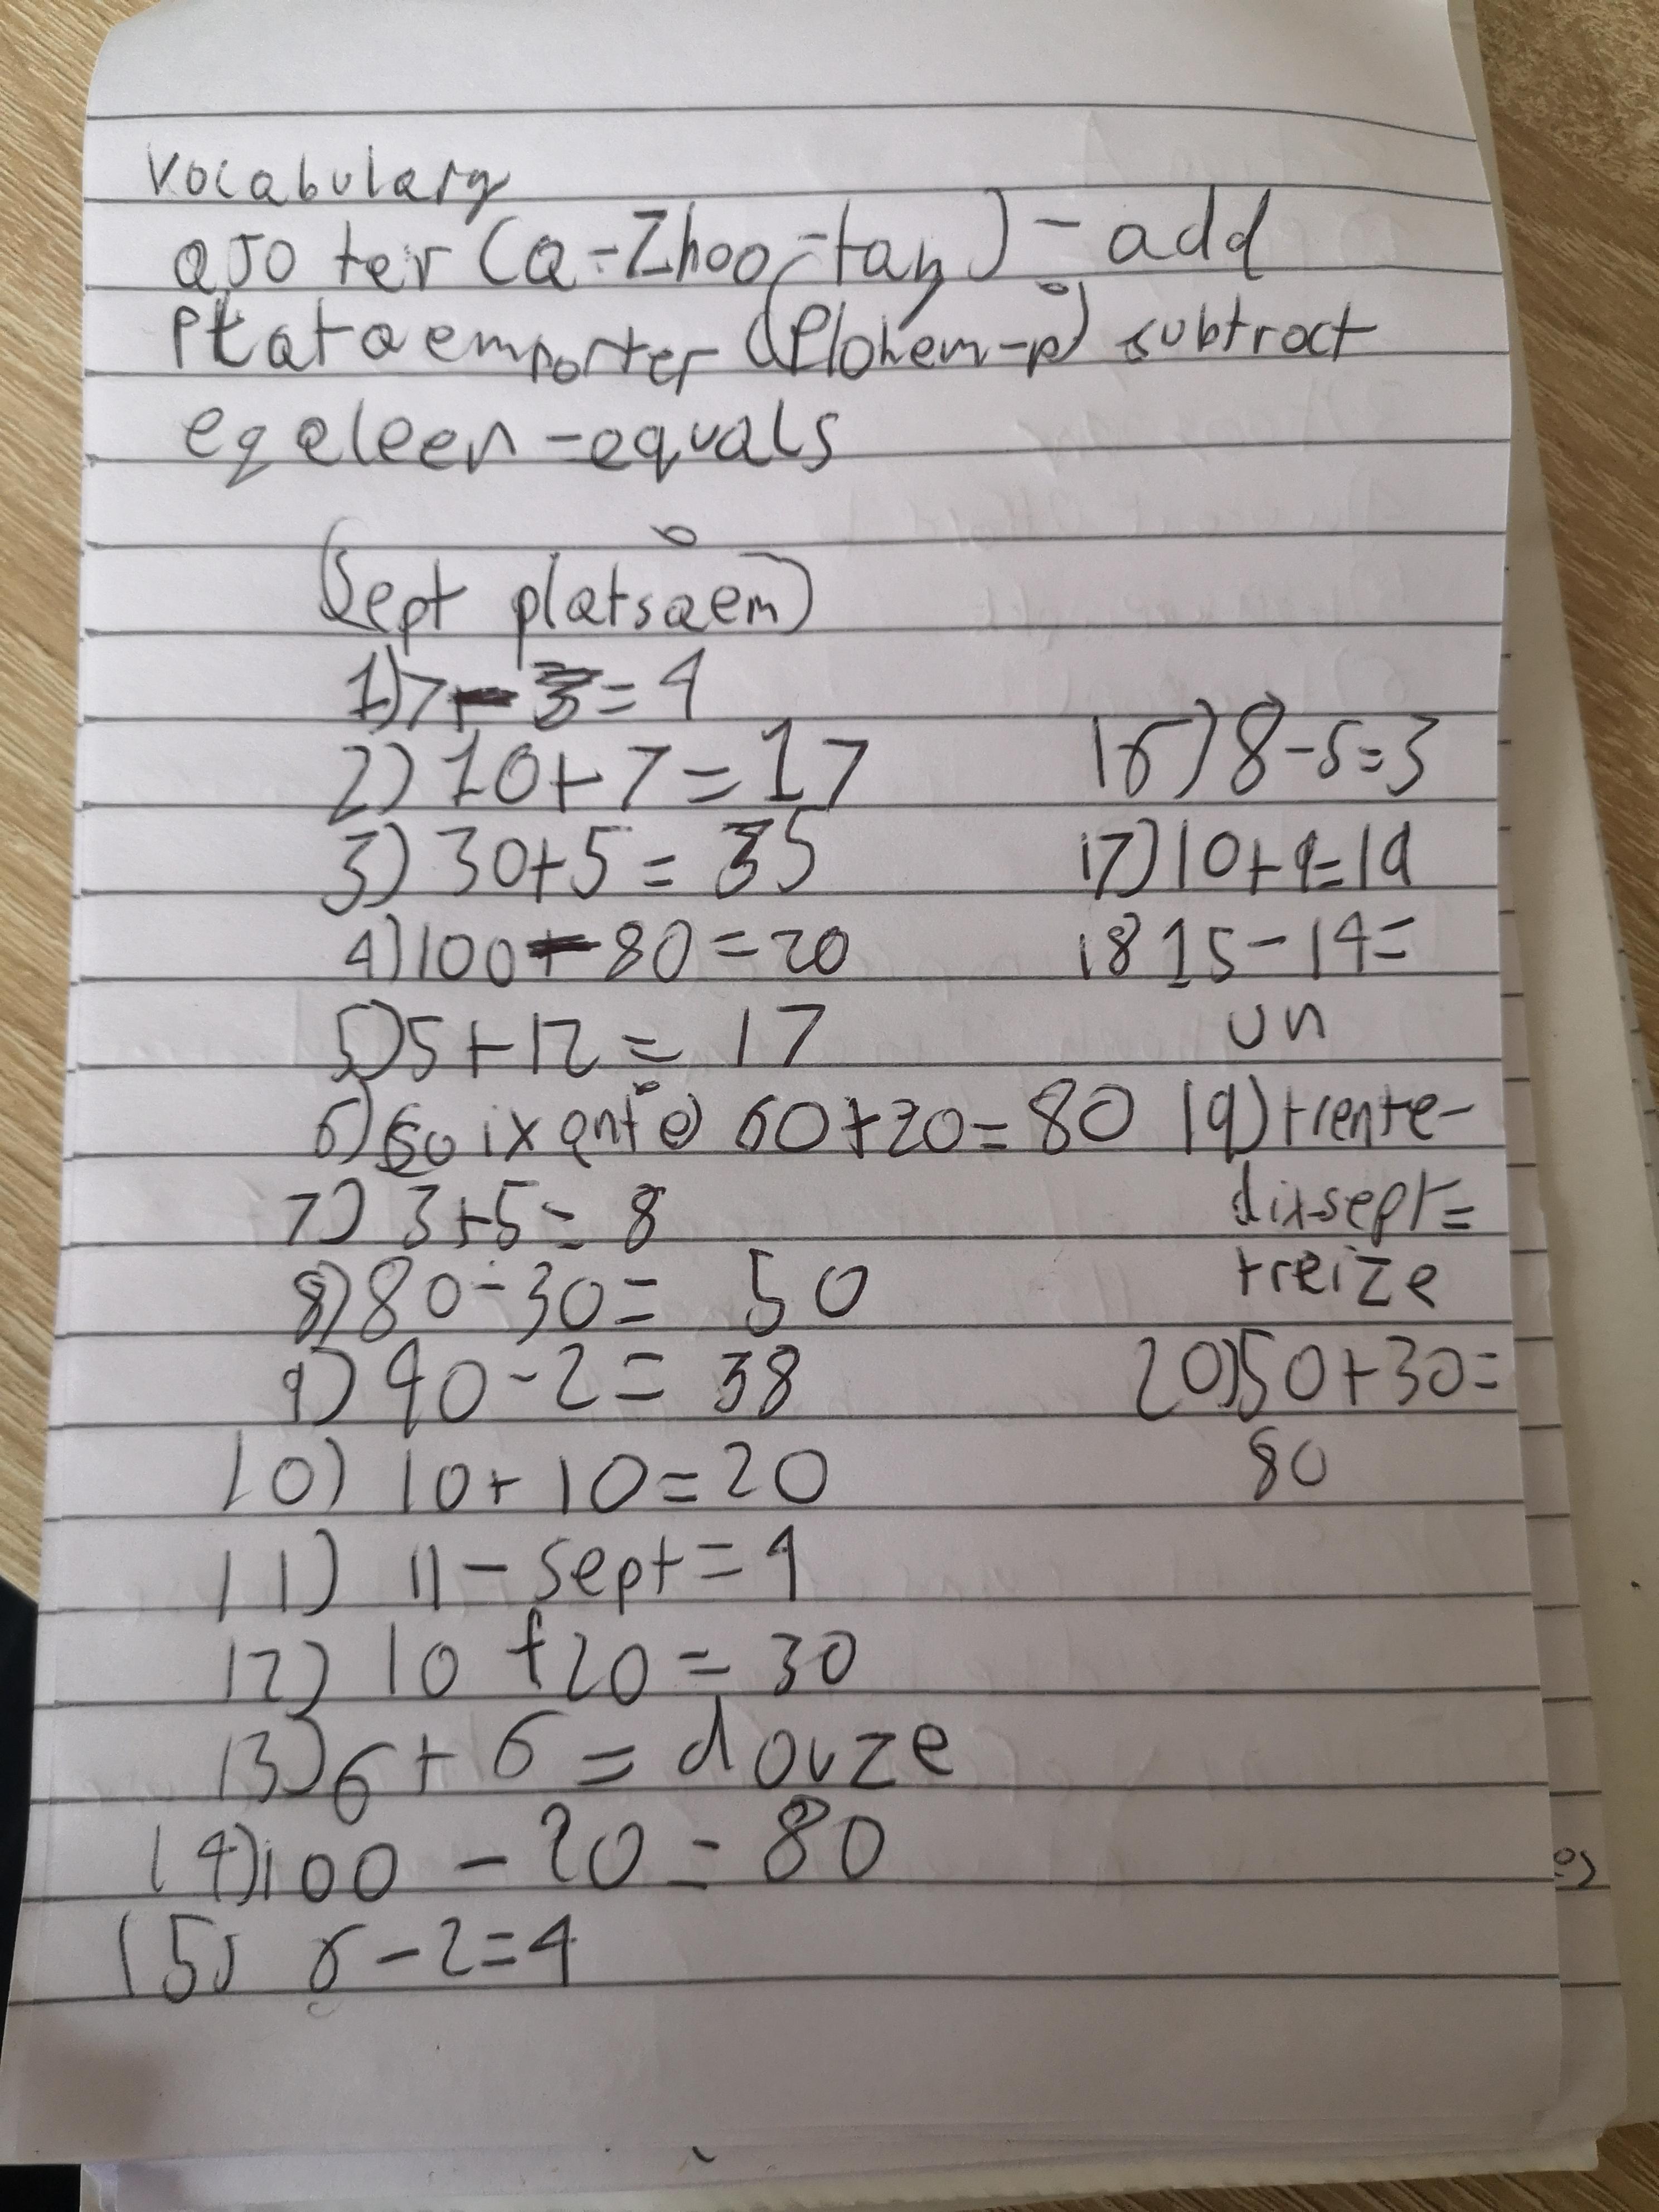 Vocabulary
aJo ter (a-Zhoo-tay) - add
Plataemporter (Plohem-p) subtract
egaleen - equals
(Sept platsaem)
1) 7 - 3 = 4
2) 10 + 7 = 17
3) 30 + 5 = 35
4) 100 - 80 = 20
5) 5 + 12 = 17
6) Soixante) 60 + 20 = 80
7) 3 + 5 = 8
8) 80 - 30 = 50
9) 40 - 2 = 38
10) 10 + 10 = 20
11) 11 - sept = 4
12) 10 + 20 = 30
13) 6 + 6 = douze
14) 100 - 20 = 80
15) 6 - 2 = 4
16) 8 - 5 = 3
17) 10 + 9 = 19
18 15 - 14 =
un
19) trente -
dix-sept =
treize
20) 50 + 30 =
80